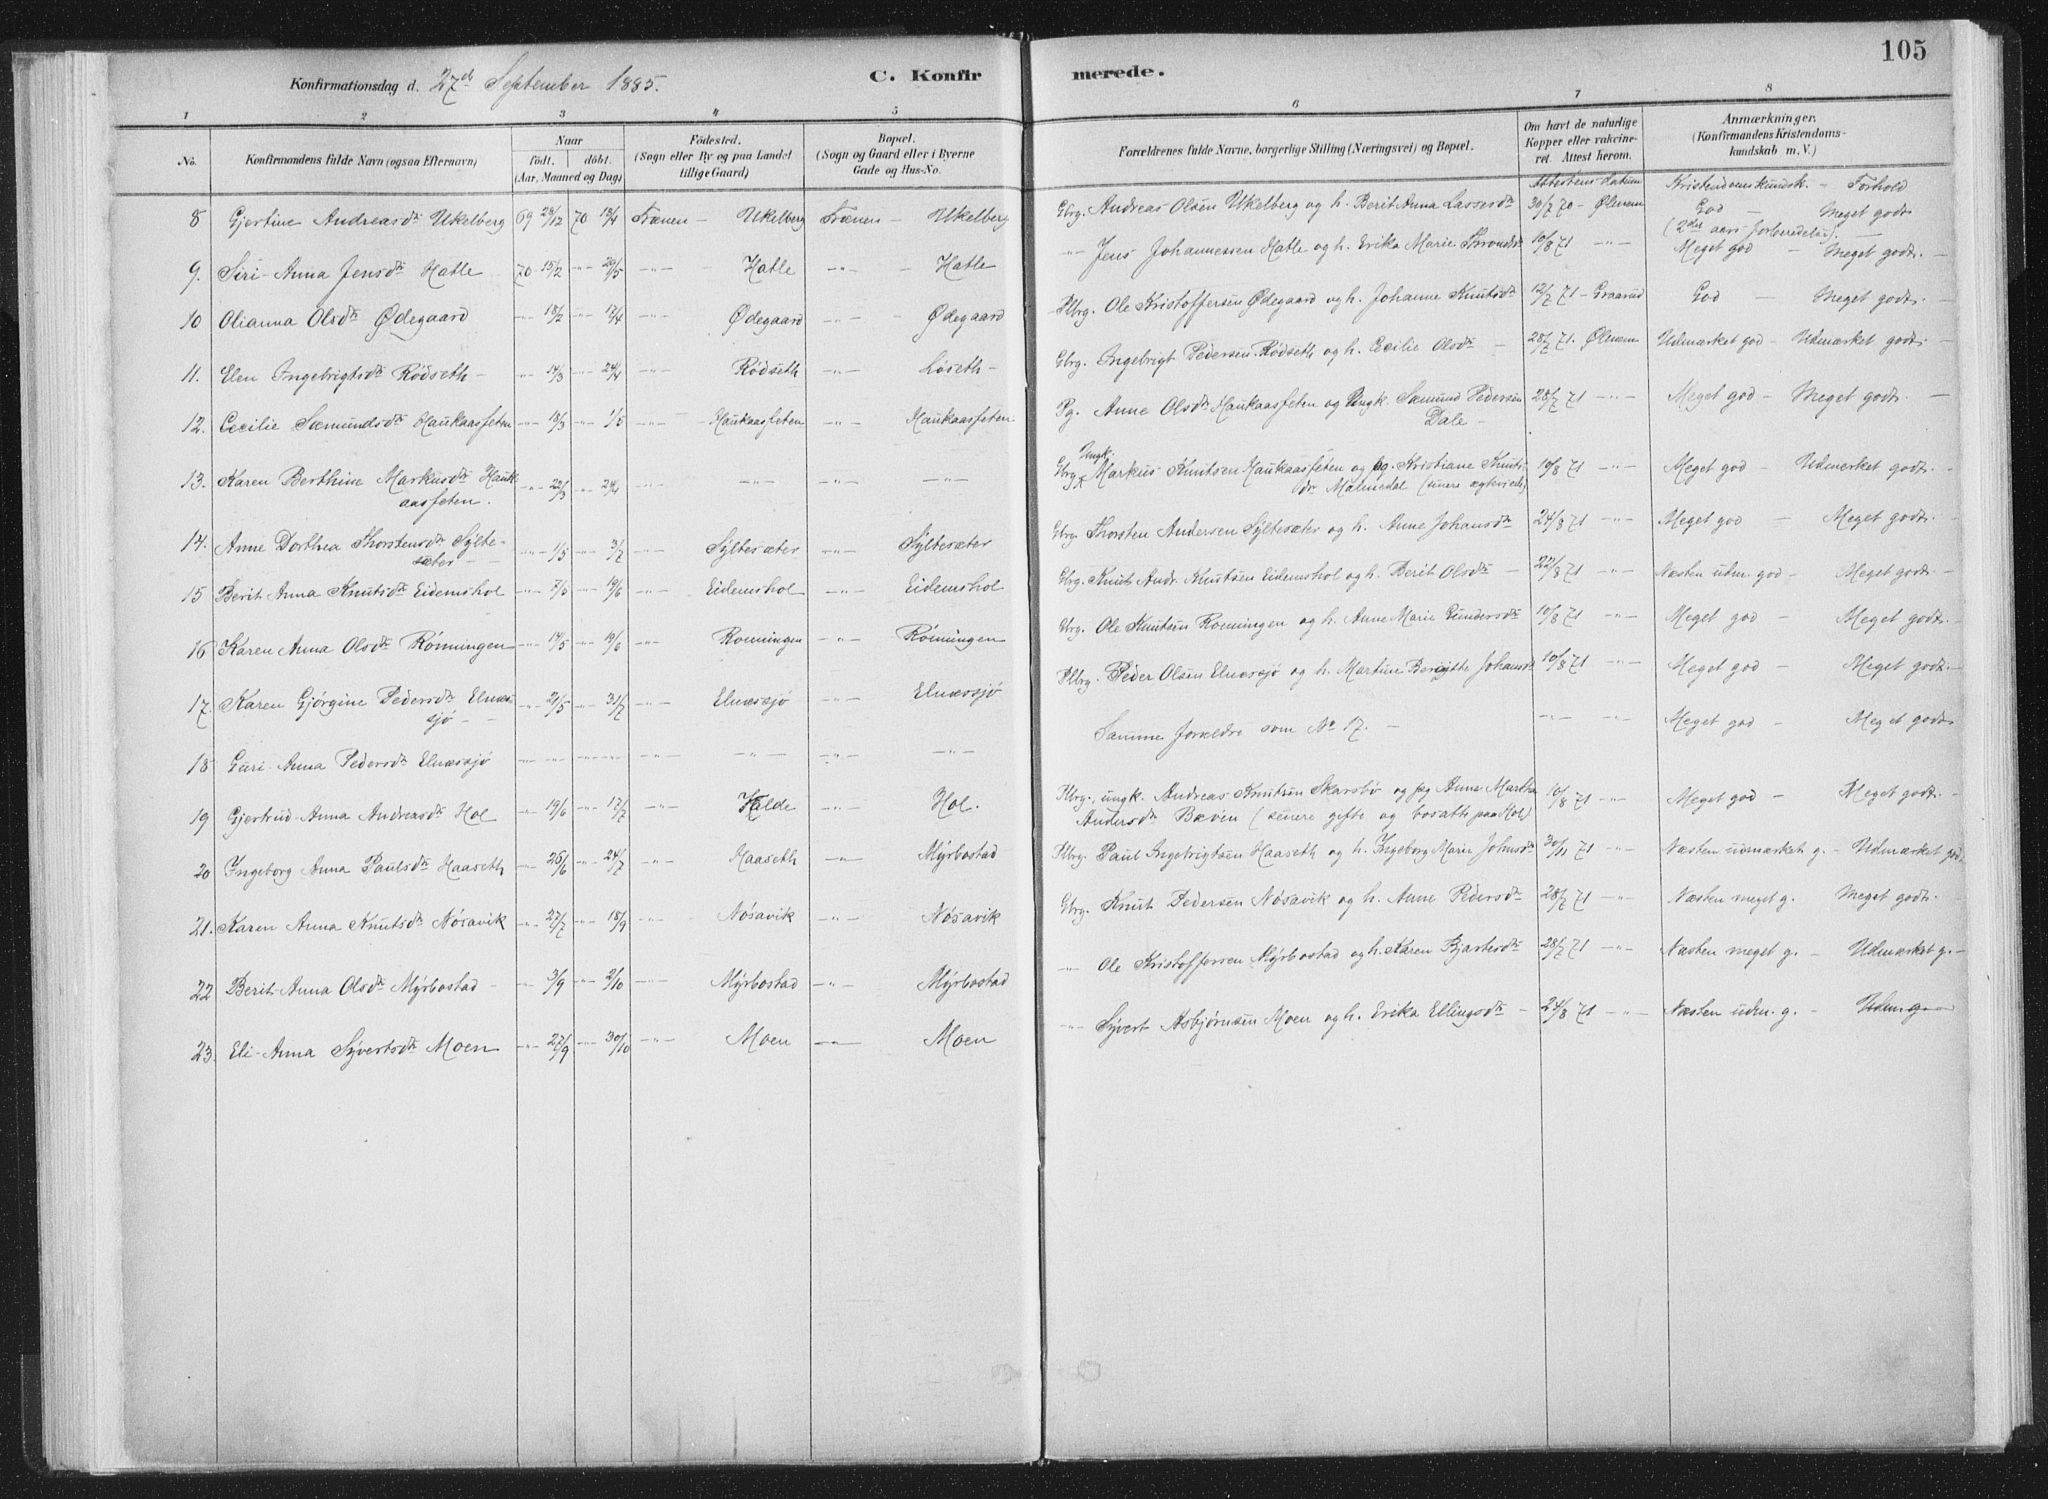 105
Konfirmationsdag d. 27de September 1885. C. Konfirmerede.
1 2 3 4 5 6 7 8
No. Konfirmandens fulde Navn (ogsaa Efternavn) Naar födt. döbt. (Aar, Maaned og Dag) Födested. (Sogn eller By og paa Landet tillige Gaard) Bopæl. (Sogn og Gaard eller i Byerne Gade og Hus-No. Forældrenes fulde Navne, borgerlige Stilling (Næringsvei) og Bopæl. Om havt de naturlige Kopper eller vakcineret. Attest herom. Anmærkninger. (Konfirmandens Kristendomskundskab m. V.)
Attestens datum Kristendomskundsk. - Forhold
8 Gjertine Andreasdtr Ukelberg 69 28/12 70 18/4 Frænen - Ukelberg Frænen - Ukelberg Gbrg. Andreas Olsen Ukelberg og h. Berit Anna Lassesdtr 30/7 70 - God - Meget godt
(2det aars forberedelse)
9. Siri-Anna Jensdtr Hatle 70 15/2 -"- 20/5 -"- Hatle -"- Hatle -"- Jens Johannessen Hatle og h. Erika Marie 10/8 71 -"- Meget god - Meget godt. -
10 Olianna Olsdtr Ødegaard -"- 18/2 -"- 17/4 -"- Ødegaard -"- Ødegaard Plbrg. Ole Kristoffersen Ødegaard og h. Johanne Knutsdtr 12/7 71 - Graarud God - Meget godt. -
11. Elen Ingebrigtsdtr Rødseth - -"- 14/3 -"- 24/4 -"- Rødseth -"- Løseth - Gbrg. Ingebrigt Pedersen Rødseth og h. Cecilie Olsdtr - 28/7 71. Udmærket god - Udmærket godt.
12. Cecilie Sæmundsdtr Haukaasfeten -"- 18/3 -"- 1/5 -"- Haukaasfeten -"- Haukaasfeten Pg. Anne Olsdtr Haukaasfeten og Ungk. Sæmund Pedersen Dale - 28/7 71 -"- Meget god - Meget godt. -
13. Karen Berthine Markusdtr Haukaasfeten. -"- 22/3 -"- 24/4 -"- -"- -"- -"- Gbrg Ungk. Markus Knutsen Haukaasfeten og pg. Kristiane Knutsdtr Malmedal (senere ægteviede) 10/8 71 -"- Meget god - Udmærket godt.
14. Anne Dorthea Thorstensdtr Syltesæter - - -"- 1/5 -"- 3/7 -"- Syltesæter -"- Syltesæter Gbrg. Thorsten Andersen Syltesæter og h. Anne Johansdtr 24/8 71 -"- Meget god - Meget godt. -
15 Berit Anna Knutsdtr Eidemshol -"- 7/5 -"- 19/6 -"- Eidemshol -"- Eidemshol Gbrg. Knut Andr. Knutsen Eidemshol og h. Berit Olsdtr - 22/8 71 -"- Næsten udm. god - Meget godt. -
16 Karen Anna Olsdtr Rönningen -"- 14/5 -"- 19/6 -"- Rönningen -"- Rönningen Gbrg. Ole Knutsen Rönningen og h. Anne Marie Gundersdtr 10/8 71 -"- Meget god - Meget godt. -
17. Karen Gjørgine Pedersdtr Elnæssjø - - -"- 21/5 -"- 31/7 -"- Elnæssjø -"- Elnæssjø Plbrg. Peder Olsen Elnæssjø og h. Martine Berigitte Johansdtr 10/8 71 -"- Meget god - Meget godt. -
18 Guri-Anna Pedersdtr Elnæssjø -"- -"- -"- -"- -"- -"- -"- -"- Samme forældre som No 17. - -"- -"- Meget god - Meget godt.
19 Gjertrud-Anna Andreasdtr Hol -"- 19/6 -"- 17/7 -"- Halde -"- Hol. Plbrg., ungk. Andreas Knutsen Skarsbø og pg Anne Martha Andersdtr Bæven (senere gifte og bosatte paa Hol) 10/8 71 -"- Meget god - Meget godt. -
20 Ingeborg Anna Paulsdtr Haaseth -"- 26/6 -"- 24/7 -"- Haaseth -"- Myrbostad Plbrg. Paul Ingebrigtsen Haaseth og h. Ingeborg Marie Johnsdtr 30/11 71 -"- Næsten udmærket g. - Udmærket godt.
21. Karen Anna Knutsdtr Nøsavik -"- 27/7 -"- 18/9 -"- Nøsavik -"- Nøsavik Gbrg. Knut Pedersen Nøsavik og h. Anne Pedersdtr 28/7 71 -"- Næsten meget g. Meget godt.
22 Berit-Anna Olsdtr Myrbostad - -"- 3/9 -"- 2/10 -"- Myrbostad -"- Myrbostad -"- Ole Kristoffersen Myrbostad og h. Karen Bjartesdtr 28/7 71 -"- Næsten meget g. - Udmærket g. -
23. Eli-Anna Syvertsdtr Moen -"- 27/9 -"- 30/10 -"- Moen -"- Moen -"- Syvert Asbjørnsen Moen og h. Erika Ellingsdtr - 24/8 71 -"- Næsten udm. g. - Udm. g.